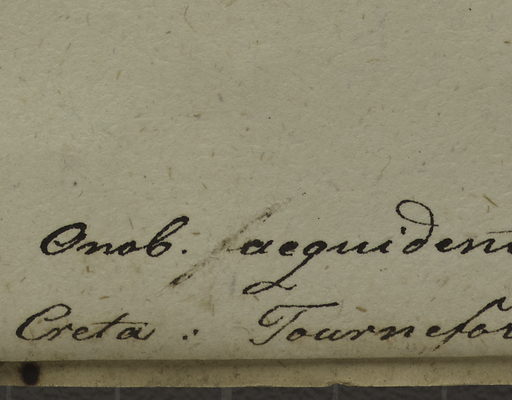 Onob. aequident
Creta: Tournefor